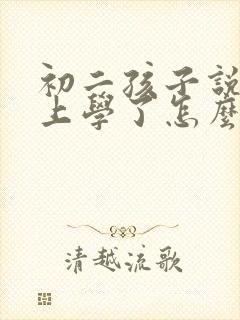 初二孩子說
上學了怎麼
清越流歌